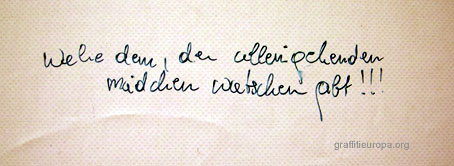 Wehe dem, der alleingehenden
mädchen watschen gibt!!!
graffitieuropa.org